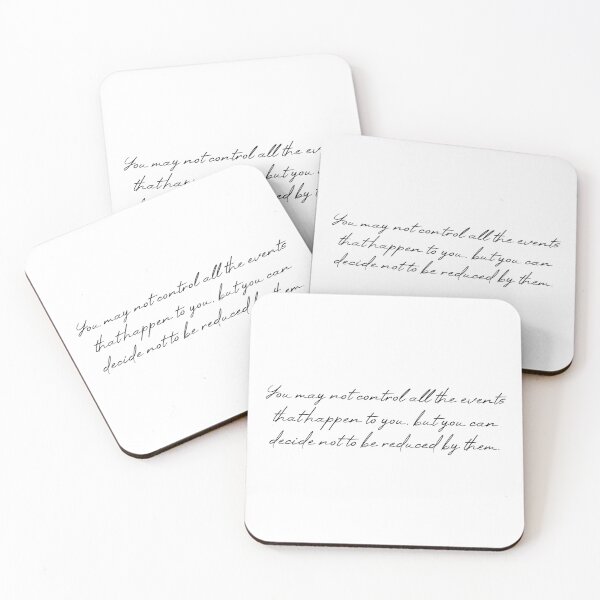 You may not control all the
that but you
You may not control all the events
that happen to you, but you can
decide not to be reduced by them
You may not control all the events
that happen to you, but you can
decide not to be reduced by them
You may not control all the events
that happen to you, but you can
decide not to be reduced by them.